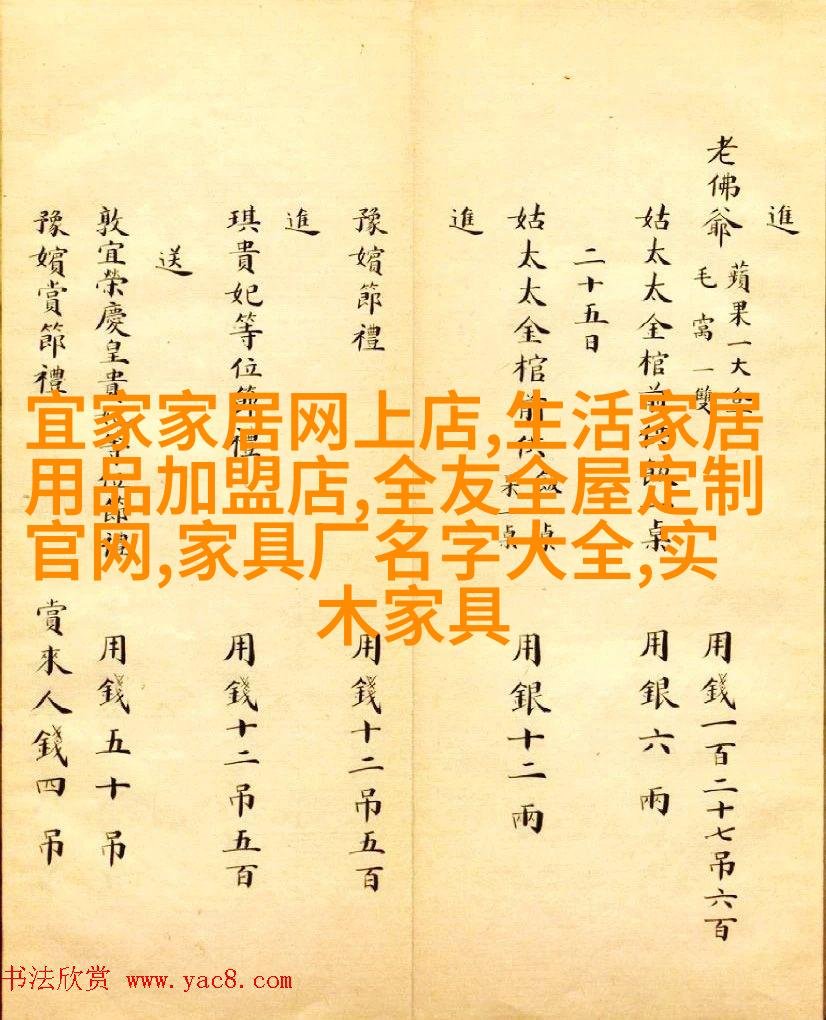 進
老佛爺 蘋果一大
毛窩一雙
用錢一百二十七吊六百
姑太太金棺前 桌
用銀六兩
二十五日
姑太太金棺前供 桌
用銀十二兩
進
豫嬪節禮
用錢十二吊五百
進
琪貴妃等位節禮
用錢十二吊五百
送
敦宜榮慶皇貴妃 節禮
用錢五十吊
豫嬪賞節禮
賞來人錢四吊
宜家家居网上店,生活家居
用品加盟店,全友全屋定制
官网,家具厂名字大全,实
木家具
书法欣赏 www.yac8.com